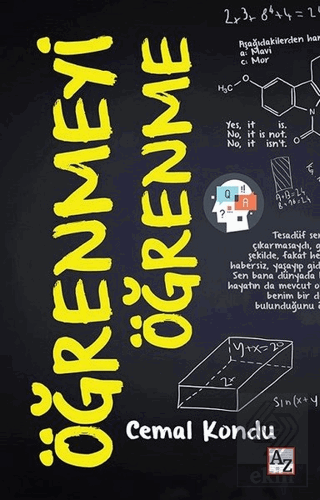 ÖĞRENMEYİ
ÖĞRENME
2x3x8⁴+4=24
Aşağıdakilerden
a: Mavi
c: Mor
H₃C
O
N
O
Yes, it is.
No, it is not.
No, it isn't.
Q
A
?!
A+B=24
Tesadüf
çıkarmasaydı,
şekilde, fakat
habersiz, yaşayıp
Sen bana dünyada
hayatın da mevcut
benim bir
bulunduğunu
y+x=20
2x
Sin(x+y
Cemal Kondu
AZ
ekin